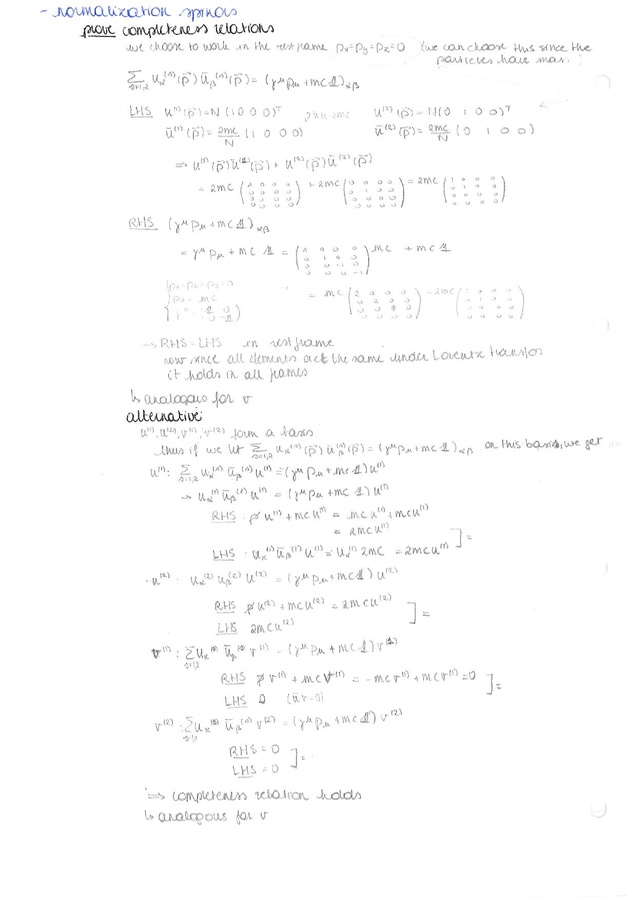 - normalization spinors
prove completeness relations
we choose to work in the restframe px=py=pz=0 (we can choose this since the
particles have mass)
∑s=1,2 uα^(s)(p⃗) ūβ^(s)(p⃗) = (γ^μ pμ + mc 𝟙)αβ
LHS u^(1)(p⃗)=N(1 0 0 0)^T u^(2)(p⃗)=N(0 1 0 0)^T
ū^(1)(p⃗)= 2mc/N (1 0 0 0) ū^(2)(p⃗)= 2mc/N (0 1 0 0)
⇒ u^(1)(p⃗)ū^(1)(p⃗) + u^(2)(p⃗)ū^(2)(p⃗)
= 2mc (1 0 0 0 / 0 0 0 0 / 0 0 0 0 / 0 0 0 0) + 2mc (0 0 0 0 / 0 1 0 0 / 0 0 0 0 / 0 0 0 0) = 2mc (1 0 0 0 / 0 1 0 0 / 0 0 0 0 / 0 0 0 0)
RHS (γ^μ pμ + mc 𝟙)αβ
= γ^μ pμ + mc 𝟙 = (1 0 0 0 / 0 1 0 0 / 0 0 -1 0 / 0 0 0 -1) mc + mc 𝟙
px=py=pz=0
p0=mc
= mc (2 0 0 0 / 0 2 0 0 / 0 0 0 0 / 0 0 0 0) = 2mc (1 0 0 0 / 0 1 0 0 / 0 0 0 0 / 0 0 0 0)
→ RHS=LHS in restframe
now since all elements act the same under Lorentz transfor
it holds in all frames
↳ analogous for v
alternative
u^(1), u^(2), v^(1), v^(2) form a basis
thus if we let ∑s=1,2 uα^(s)(p⃗) ūβ^(s)(p⃗) = (γ^μ pμ + mc 𝟙)αβ on this basis, we get
u^(1): ∑s=1,2 uα^(s) ūβ^(s) u^(1) = (γ^μ pμ + mc 𝟙) u^(1)
→ uα^(1) ūβ^(1) u^(1) = (γ^μ pμ + mc 𝟙) u^(1)
RHS : p̸ u^(1) + mc u^(1) = mc u^(1) + mc u^(1)
= 2mc u^(1)
LHS : uα^(1) ūβ^(1) u^(1) = uα^(1) 2mc = 2mc u^(1) ] =
u^(2): uα^(2) uβ^(2) u^(2) = (γ^μ pμ + mc 𝟙) u^(2)
RHS p̸ u^(2) + mc u^(2) = 2mc u^(2)
LHS 2mc u^(2) ] =
v^(1): ∑s=1,2 uα^(s) ūβ^(s) v^(1) = (γ^μ pμ + mc 𝟙) v^(1)
RHS p̸ v^(1) + mc v^(1) = -mc v^(1) + mc v^(1) = 0
LHS 0 (ūv=0) ] =
v^(2): ∑s=1,2 uα^(s) ūβ^(s) v^(2) = (γ^μ pμ + mc 𝟙) v^(2)
RHS = 0
LHS = 0 ] =
⇒ completeness relation holds
↳ analogous for v